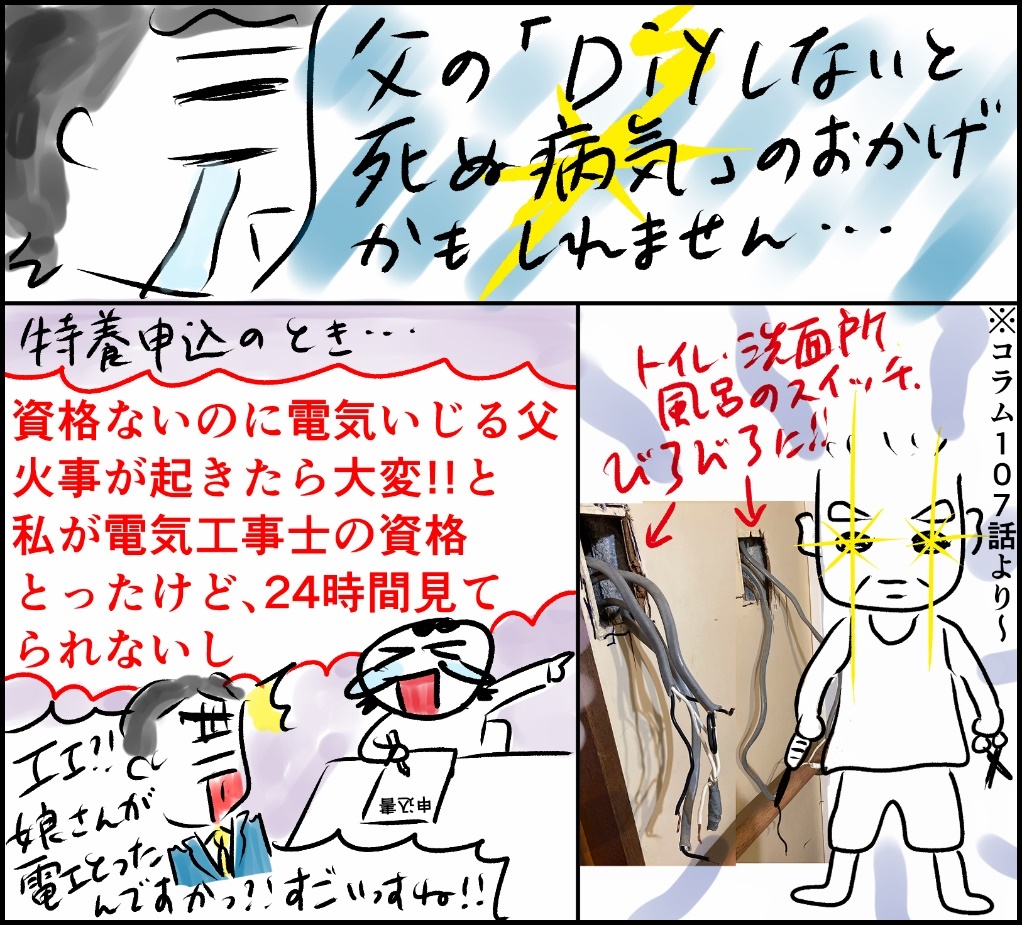 父の「DiYしないと
死ぬ病気」のおかげ
かもしれません・・・
特養申込のとき・・・
資格ないのに電気いじる父
火事が起きたら大変!!と
私が電気工事士の資格
とったけど、24時間見て
られないし
エエ?!
娘さんが
電工とった
んですかっ?!すごいっすね!!
申込書
※コラム107話より～
トイレ・洗面所
風呂のスイッチ.
びろびろに!!